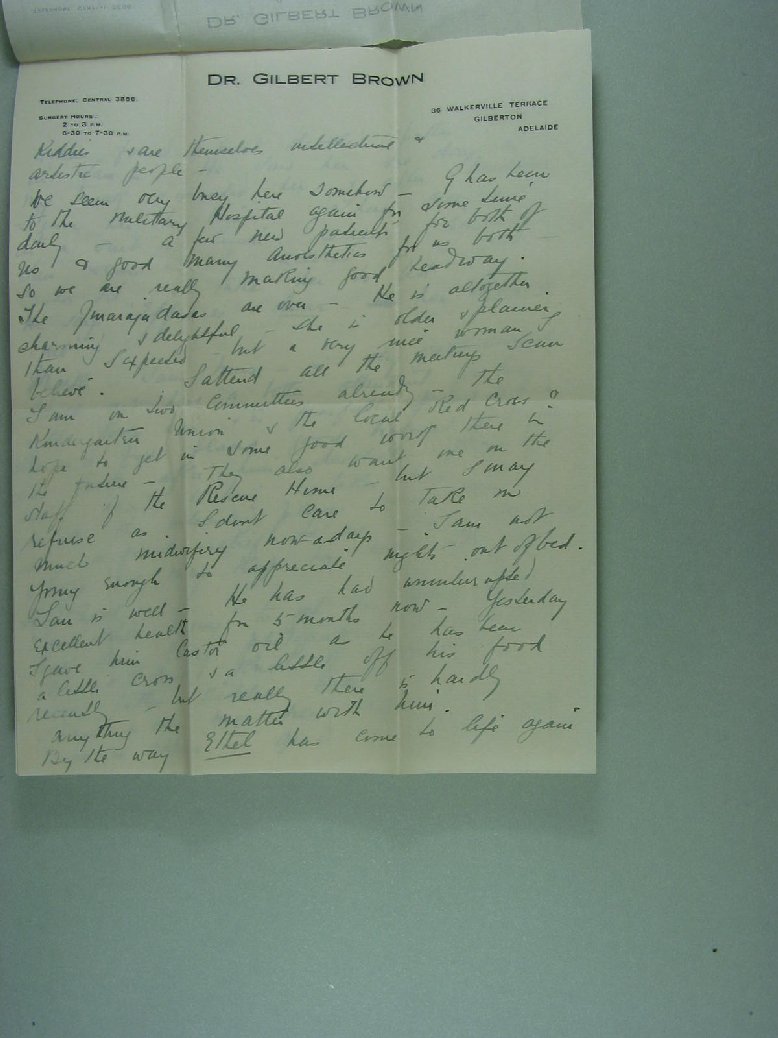 DR. GILBERT BROWN
TELEPHONE, CENTRAL 3888.
SURGERY HOURS:
2 TO 3 P.M.
6-30 TO 7-30 P.M.
36 WALKERVILLE TERRACE
GILBERTON
ADELAIDE
Kiddies & are themselves intellectual &
artistic people —
We seem very busy here somehow — G has been
to the Military Hospital again for some time
daily — a few new patients for both of
us & good many Anaesthetics for us both —
So we are really making good headway.
The Jinarajadasas are over — He is altogether
charming & delightful — she is older & plainer
than I expected — but a very nice woman I
believe. I attend all the meetings I can
I am on two Committees already — the
Kindergarten Union & the local Red Cross &
hope to get in some good work there in
the future — They also want me on the
staff of the Rescue Home — but I may
refuse as I don't care to take on
much midwifery now-a-days — I am not
young enough to appreciate nights out of bed.
Ian is well — He has had uninterrupted
excellent health for 5 months now — Yesterday
I gave him Castor oil as he has been
a little cross & a little off his food
recently — but really there is hardly
anything the matter with him.
By the way Ethel has come to life again